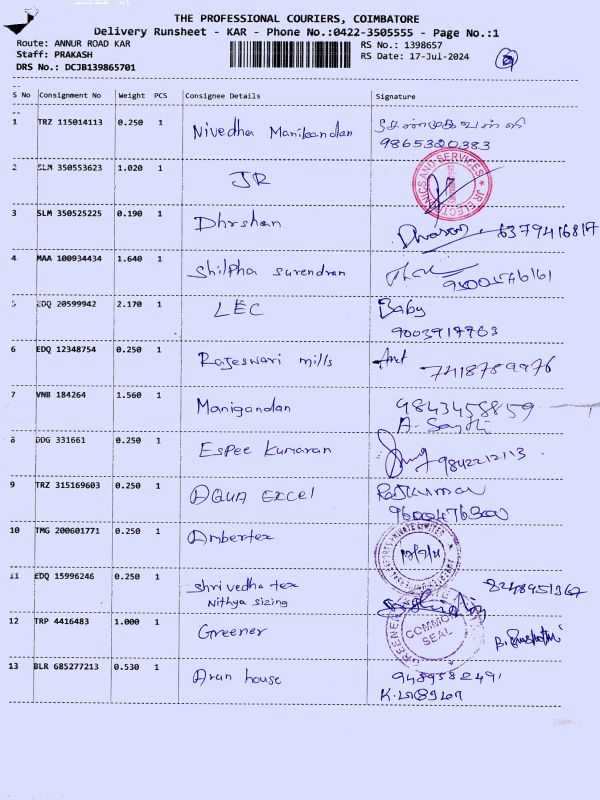 THE PROFESSIONAL COURIERS, COIMBATORE
Delivery Runsheet - KAR - Phone No.:0422-3505555 - Page No.:1
Route: ANNUR ROAD KAR
RS No.: 1398657
Staff: PRAKASH
RS Date: 17-Jul-2024
DRS No.: DCJB139865701
S No Consignment No Weight PCS Consignee Details Signature
1 TRZ 115014113 0.250 1 Nivedha Manikandan
9865320383
2 SLM 350553623 1.020 1 JR
JR ELECTRONICS AND SERVICES
3 SLM 350525225 0.190 1 Dhrshan
6379416817
4 MAA 100934434 1.640 1 Shilpha surendran
5 EDQ 20599942 2.170 1 LEC Baby
9003917763
6 EDQ 12348754 0.250 1 Rajeswari mills
7418789976
7 VNB 184264 1.560 1 Manigandan 9843458859
8 DDG 331661 0.250 1 Espee Kumaran
9842212113
9 TRZ 315169603 0.250 1 AQUA EXCEL Rajkumar
10 TMG 200601771 0.250 1 Ambertex
11 EDQ 15996246 0.250 1 Shri vedha tex 8248951367
Nithya sizing
12 TRP 4416483 1.000 1 Greener
COMMON SEAL
13 BLR 685277213 0.530 1 Arun house